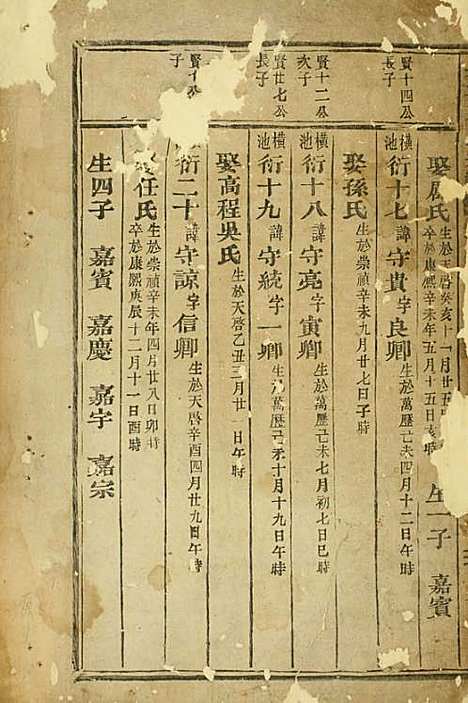 娶 氏 生於天啓癸亥十一月廿五 卒於康熙辛未年五月十五日亥時 生一子 嘉賓
賢十四公長子
橫池 衍十七 諱守貴字良卿 生於萬歷己未四月十二日午時
娶孫氏 生於崇禎辛未九月廿七日子時
賢十二公次子
橫池 衍十八 諱守亮字寅卿 生於萬歷己未七月初七日巳時
賢廿七公長子
橫池 衍十九 諱守統字一卿 生於萬歷己未十月十九日午時
娶高程吳氏 生於天啓乙丑三月廿 日午時
賢十 公 子
衍二十 諱守諒字信卿 生於天啓辛酉四月廿九日午時
任氏 生於崇禎辛未年四月廿八日卯時 卒於康熙庚辰十二月十一日酉時
生四子 嘉賓 嘉慶 嘉字 嘉宗